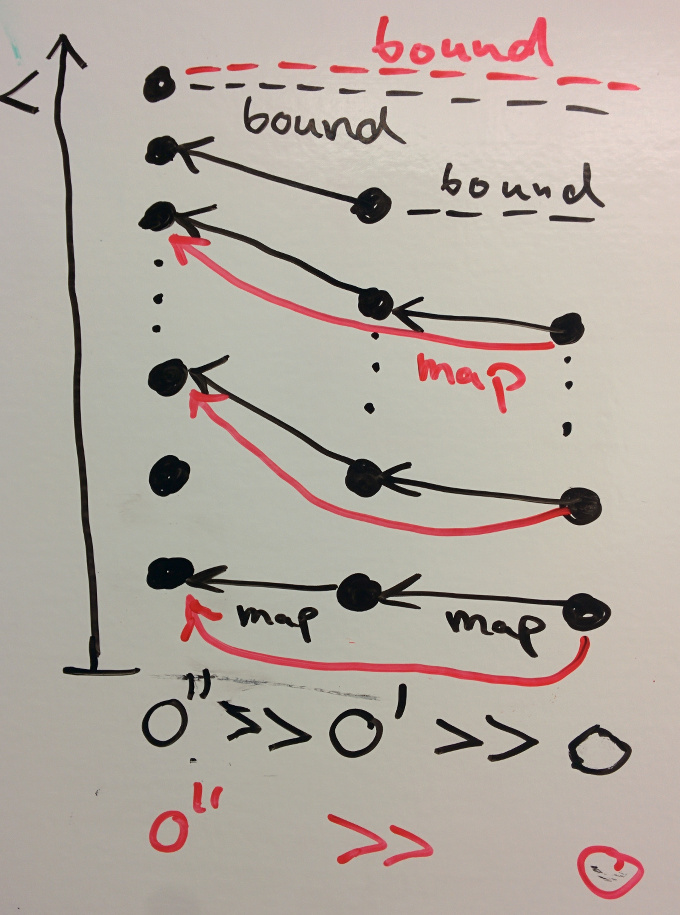 bound
<
bound
bound
map
map map
O'' >> O' >> O
O'' >> O